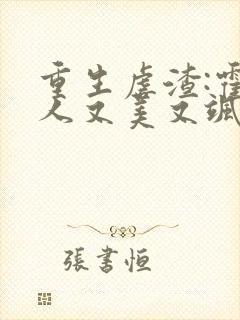 重生虐渣:霍
人又美又飒
張書恒